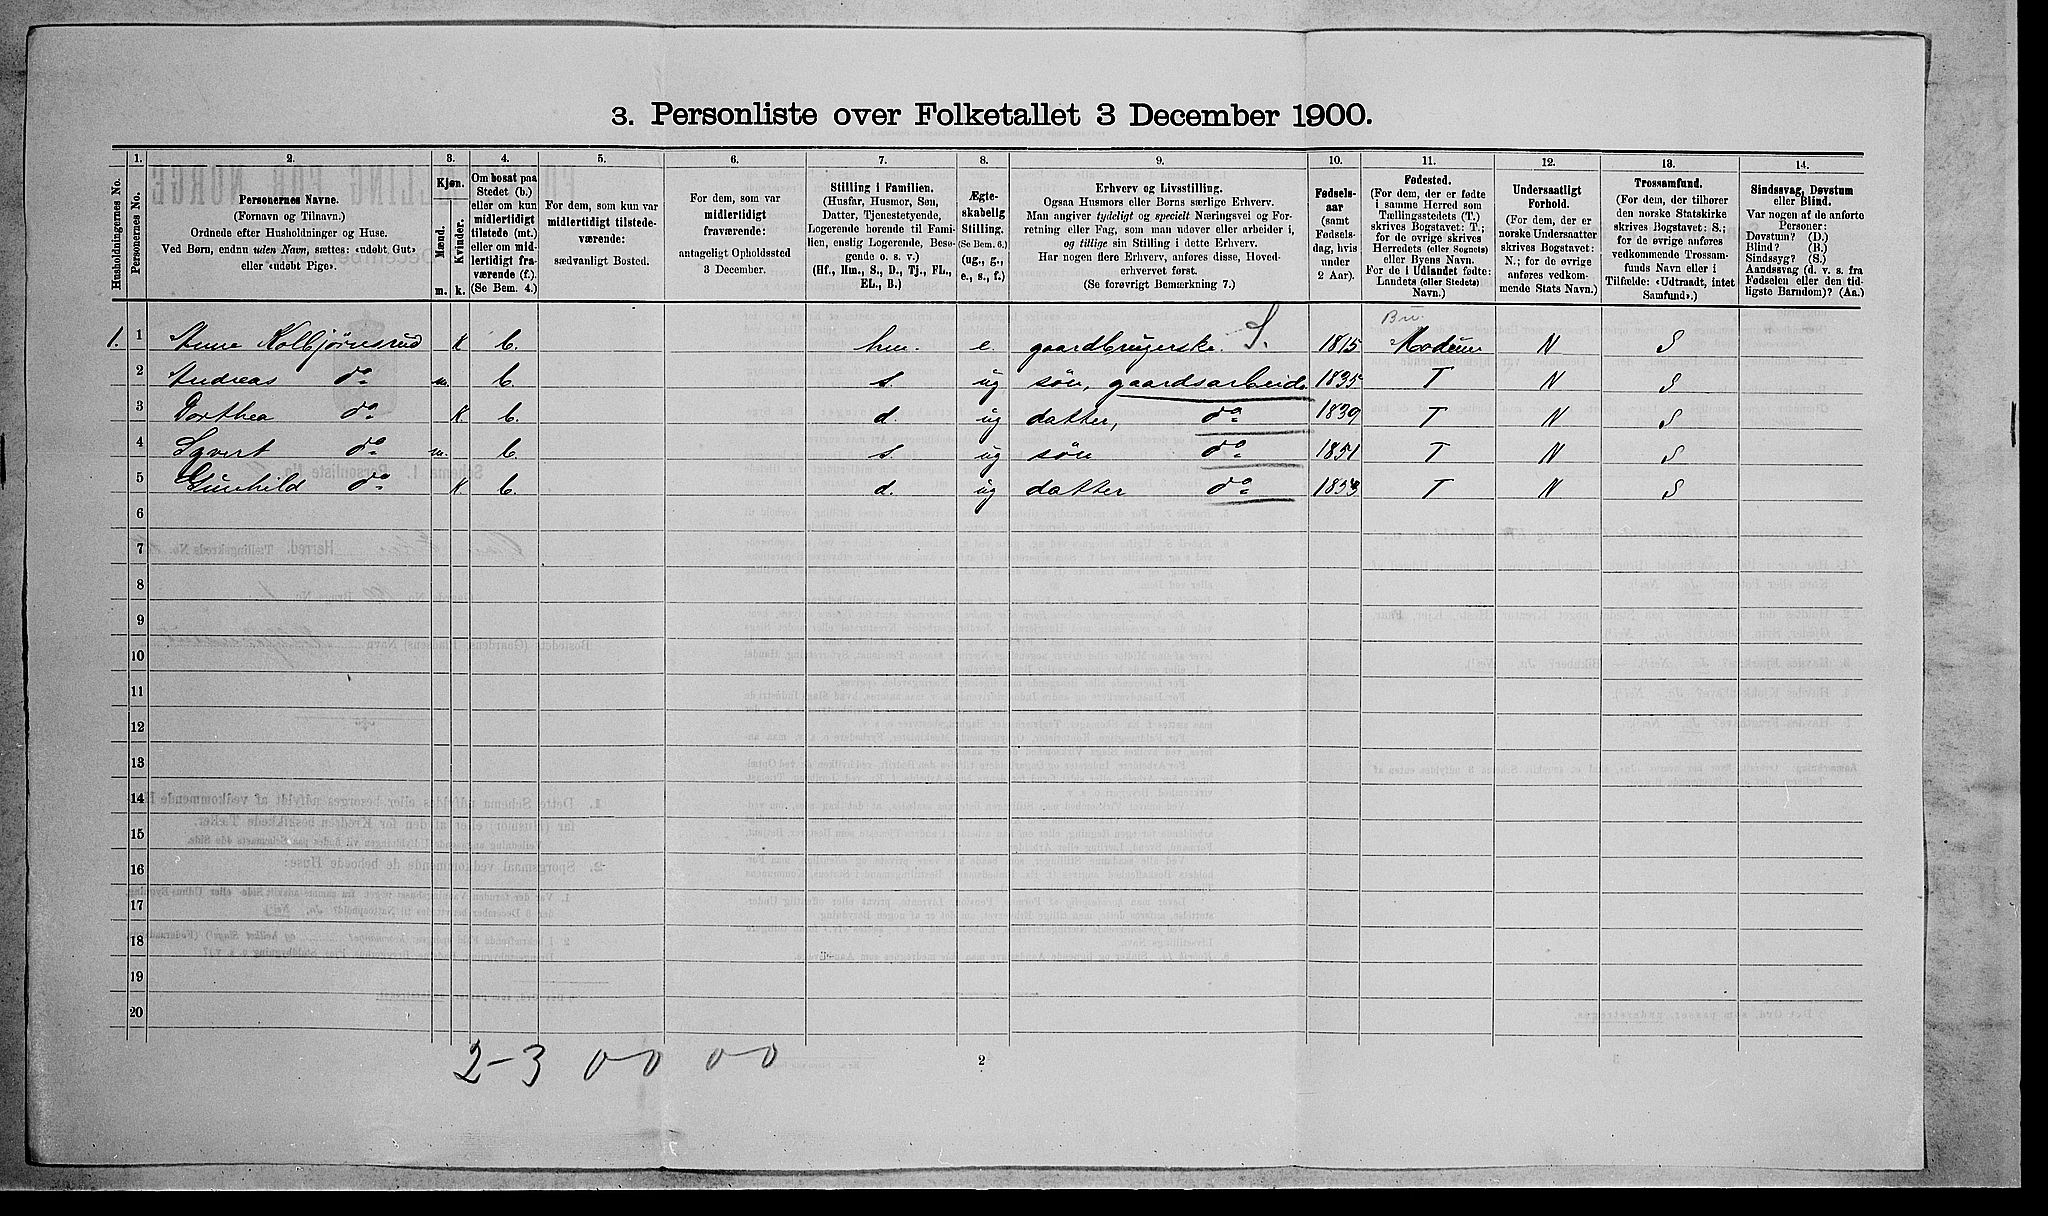 3. Personliste over Folketallet 3 December 1900.
Husholdningernes No.
1.
Personernes No.
2.
Personernes Navne.
(Fornavn og Tilnavn.)
Ordnede efter Husholdninger og Huse.
Ved Børn, endnu uden Navn, sættes: «udøbt Gut»
eller «udøbt Pige».
3.
Kjøn.
Mænd.
Kvinder.
m. k.
4.
Om bosat paa
Stedet (b.)
eller om kun
midlertidigt
tilstede (mt.)
eller om mid-
lertidigt fra-
værende (f.).
(Se Bem. 4.)
5.
For dem, som kun var
midlertidigt tilstede-
værende:
sædvanligt Bosted.
6.
For dem, som var
midlertidigt
fraværende:
antageligt Opholdssted
3 December.
7.
Stilling i Familien.
(Husfar, Husmor, Søn,
Datter, Tjenestetyende,
Logerende hørende til Fami-
lien, enslig Logerende, Besø-
gende o. s. v.)
(Hf., Hm., S., D., Tj., FL.,
EL., B.)
8.
Ægte-
skabelig
Stilling.
(Se Bem. 6.)
(ug., g.,
e., s., f.)
9.
Erhverv og Livsstilling.
Ogsaa Husmors eller Børns særlige Erhverv.
Man angiver tydeligt og specielt Næringsvei og For-
retning eller Fag, som man udøver eller arbeider i,
og tillige sin Stilling i dette Erhverv.
Har nogen flere Erhverv, anføres disse, Hoved-
erhvervet først.
(Se forøvrigt Bemærkning 7.)
10.
Fødsels-
aar
(samt
Fødsels-
dag, hvis
under
2 Aar).
11.
Fødested.
(For dem, der er fødte
i samme Herred som
Tællingsstedets (T.)
skrives Bogstavet: T.;
for de øvrige skrives
Herredets (eller Sognets)
eller Byens Navn.
For de i Udlandet fødte:
Landets (eller Stedets)
Navn.)
12.
Undersaatligt
Forhold.
(For dem, der er
norske Undersaatter
skrives Bogstavet:
N.; for de øvrige
anføres vedkom-
mende Stats Navn.)
13.
Trossamfund.
(For dem, der tilhører
den norske Statskirke
skrives Bogstavet: S.;
for de øvrige anføres
vedkommende Trossam-
funds Navn eller i
Tilfælde: «Udtraadt, intet
Samfund».)
14.
Sindssvag, Døvstum
eller Blind.
Var nogen af de anførte
Personer:
Døvstum? (D.)
Blind? (B.)
Sindssyg? (S.)
Aandssvag (d. v. s. fra
Fødselen eller den tid-
ligste Barndom)? (Aa.)
Bu.
1. 1 Anne Kolbjørnsrud k b. hm. e. gaardbrugerske. S. 1815 Modum N S
2 Andreas do m. b. s. ug søn, gaardsarbeid. 1835 T N S
3 Dorthea do k. b. d. ug datter, do 1839 T N S
4 Syvert do m. b. s. ug søn do 1851 T N S
5 Gunhild do k b. d. ug datter do 1853 T N S
6
7
8
9
10
11
12
13
14
15
16
17
18
19
20
2-3 0 0 0 0
2